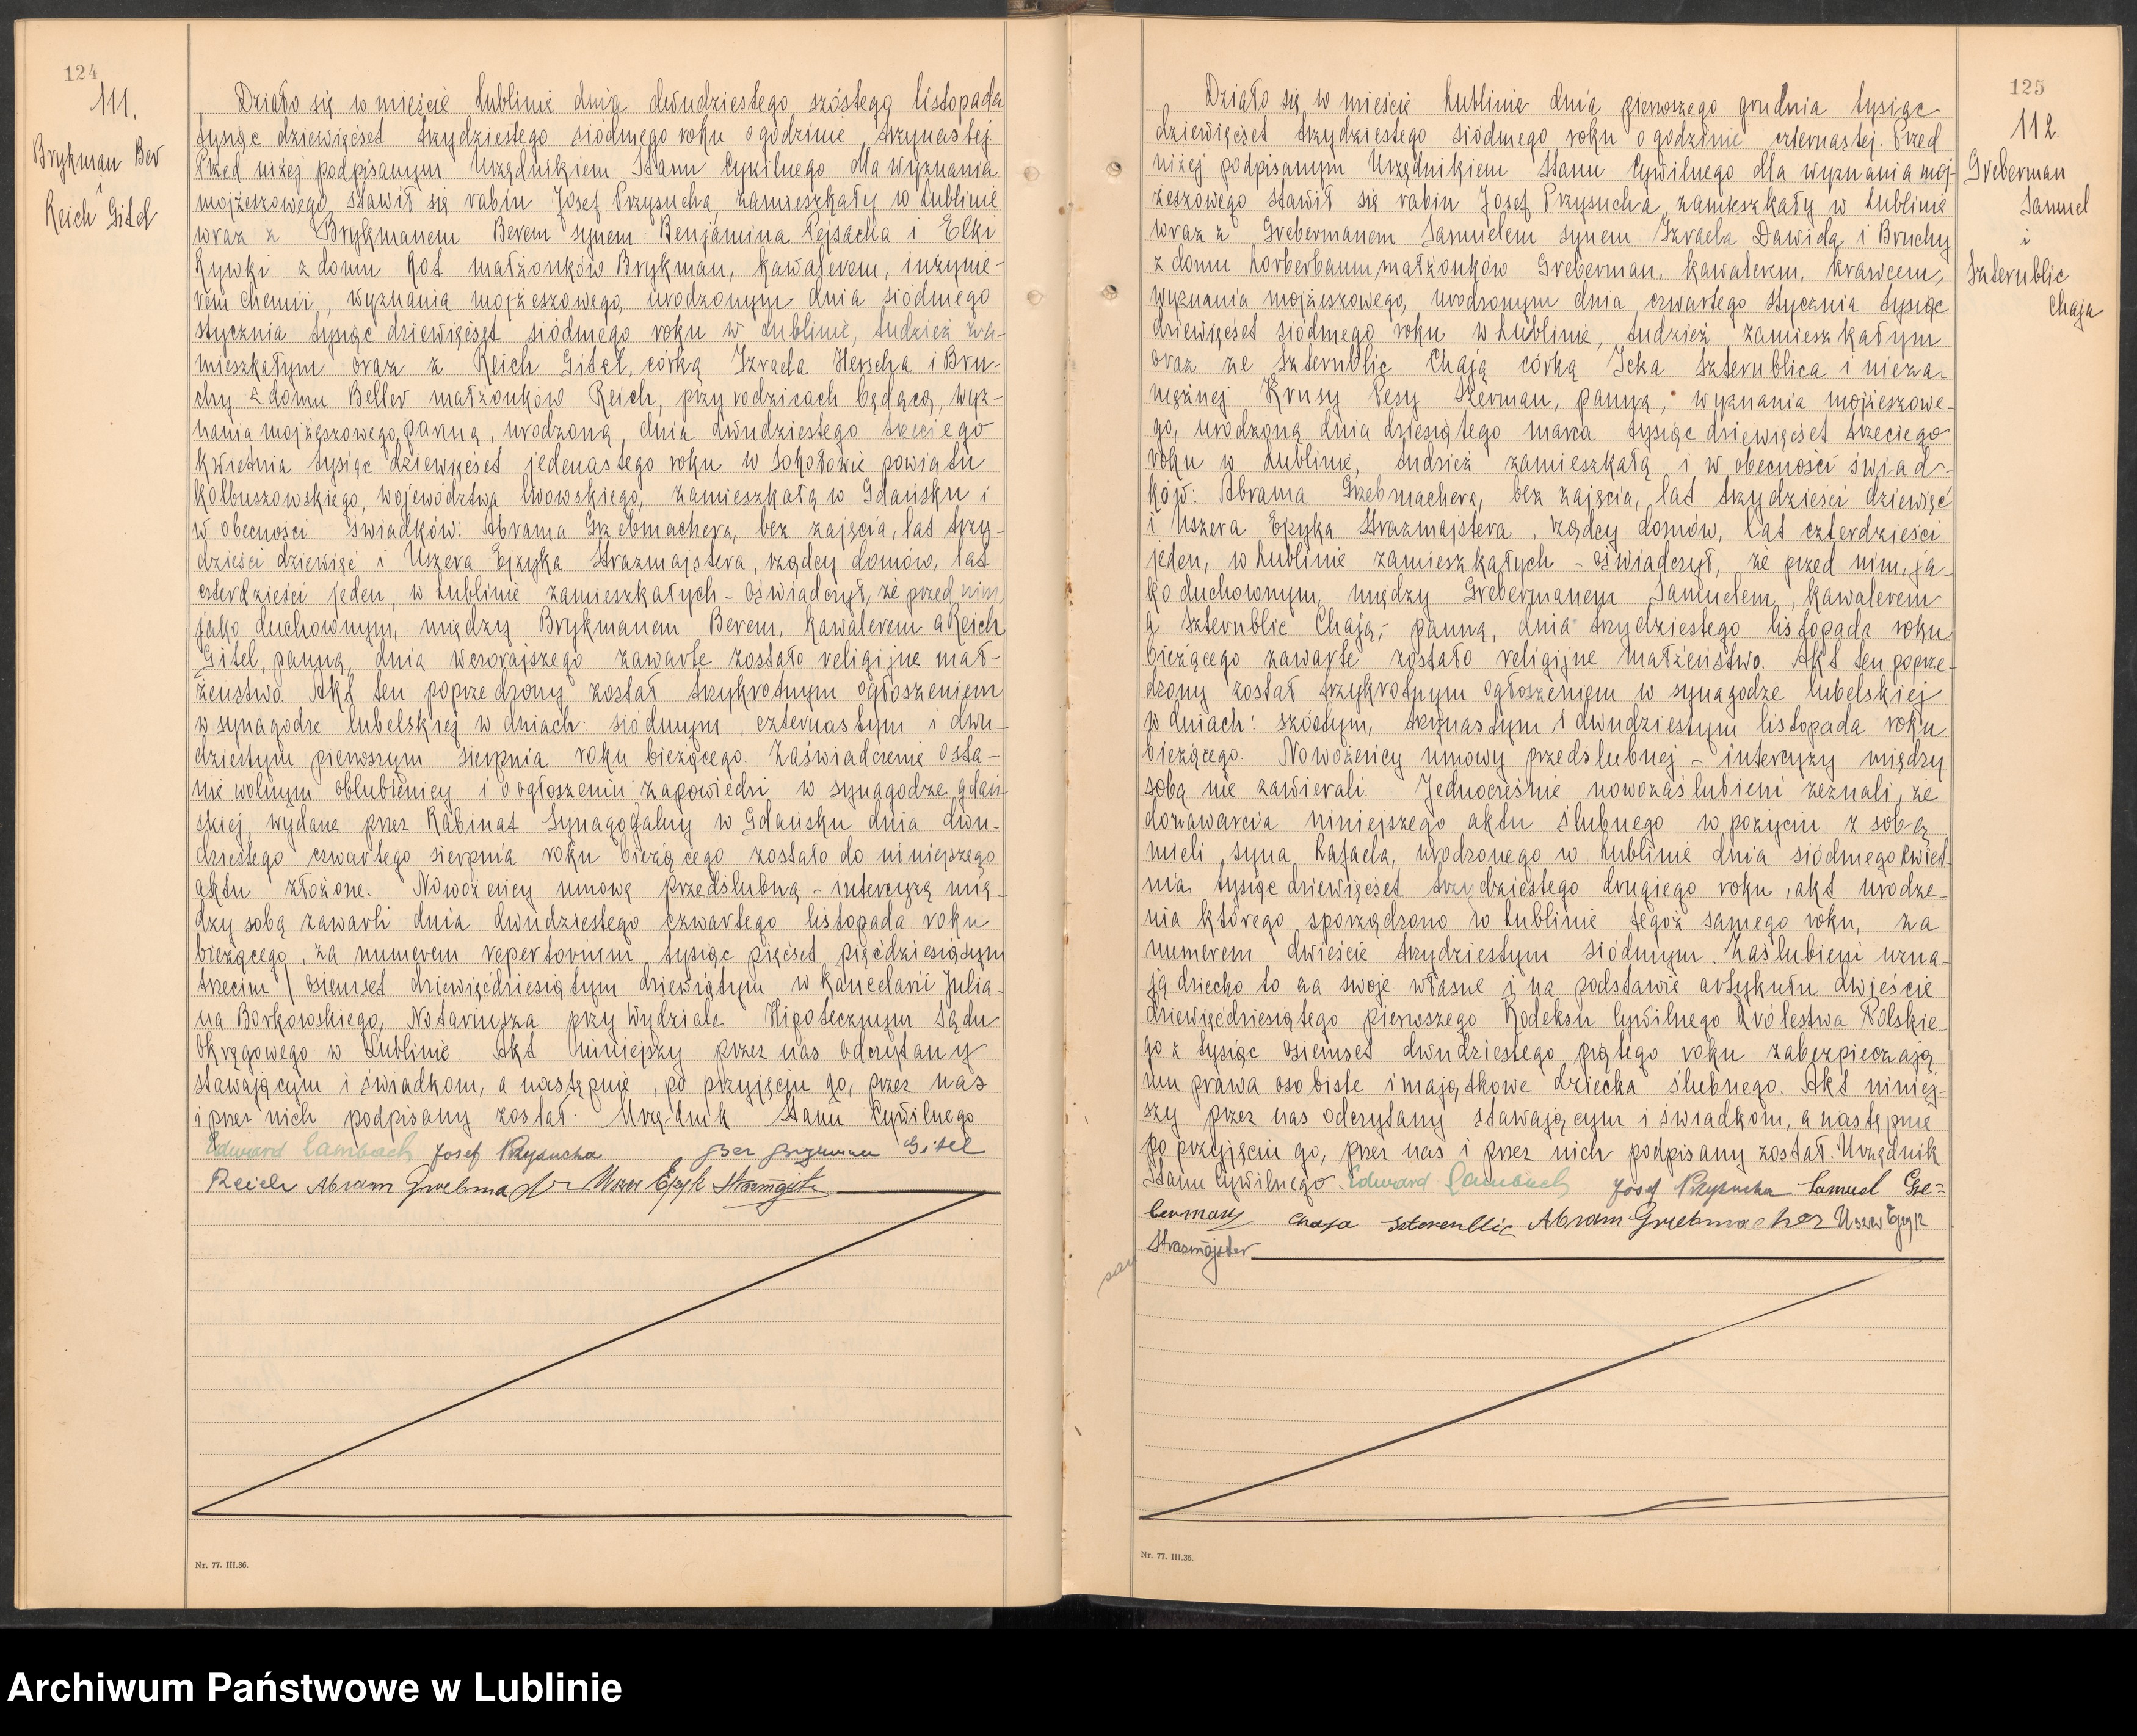 124
111.
Brykman Ber
i
Reich Gitel
Działo się w mieście Lublinie dnia dwudziestego szóstego listopada
tysiąc dziewięćset trzydziestego siódmego roku o godzinie trzynastej.
Przed niżej podpisanym Urzędnikiem Stanu Cywilnego dla wyznania
mojżeszowego stawił się rabin Josef Przysucha, zamieszkały w Lublinie
wraz z Brykmanem Berem synem Benjamina Pejsacha i Elki
Rywki z domu Rot małżonków Brykman, kawalerem, inżynie-
rem chemii, wyznania mojżeszowego, urodzonym dnia siódmego
stycznia tysiąc dziewięćset siódmego roku w Lublinie, tudzież za-
mieszkałym oraz z Reich Gitel, córką Izraela Herscha i Bru-
chy z domu Beller małżonków Reich, przy rodzicach będącą, wyz-
nania mojżeszowego, panną, urodzoną dnia dwudziestego trzeciego
kwietnia tysiąc dziewięćset jedenastego roku w Sokołowie powiatu
Kolbuszowskiego, województwa lwowskiego, zamieszkałą w Gdańsku i
w obecności świadków: Abrama Grzebmachera, bez zajęcia, lat trzy-
dzieści dziewięć i Uszera Ejzyka Strazmajstera, rządcy domów, lat
czterdzieści jeden, w Lublinie zamieszkałych - oświadczył, że przed nim,
jako duchownym, między Brykmanem Berem, kawalerem a Reich
Gitel, panną, dnia wczorajszego zawarte zostało religijne mał-
żeństwo. Akt ten poprzedzony został trzykrotnym ogłoszeniem
w synagodze lubelskiej w dniach: siódmym, czternastym i dwu-
dziestym pierwszym sierpnia roku bieżącego. Zaświadczenie o sta-
nie wolnym oblubienicy i o ogłoszeniu zapowiedzi w synagodze gdań-
skiej, wydane przez Rabinat Synagogalny w Gdańsku dnia dwu-
dziestego czwartego sierpnia roku bieżącego zostało do niniejszego
aktu złożone. Nowożeńcy umowę przedślubną - intercyzę mię-
dzy sobą zawarli dnia dwudziestego czwartego listopada roku
bieżącego, za numerem repertorium tysiąc pięćset pięćdziesiątym
trzecim / osiemset dziewięćdziesiątym dziewiątym w kancelarii Julia-
na Borkowskiego, Notariusza przy Wydziale Hipotecznym Sądu
Okręgowego w Lublinie. Akt niniejszy przez nas odczytany
stawającym i świadkom, a następnie, po przyjęciu go, przez nas
i przez nich podpisany został. Urzędnik Stanu Cywilnego
Edward Josef Przysucha Ber Gitel
Reich Abram Uszer Ejzyk
Nr. 77. III.36.
125
112.
Greberman
Samuel
i
Szternblic
Chaja
Działo się w mieście Lublinie dnia pierwszego grudnia tysiąc
dziewięćset trzydziestego siódmego roku o godzinie czternastej. Przed
niżej podpisanym Urzędnikiem Stanu Cywilnego dla wyznania moj-
żeszowego stawił się rabin Josef Przysucha, zamieszkały w Lublinie
wraz z Grebermanem Samuelem synem Izraela Dawida i Bruchy
z domu Lorberbaum, małżonków Greberman, kawalerem, krawcem,
wyznania mojżeszowego, urodzonym dnia czwartego stycznia tysiąc
dziewięćset siódmego roku w Lublinie, tudzież zamieszkałym
oraz ze Szternblic Chają córką Icka Szternblica i nieza-
mężnej Krusy Pesy Szerman, panną, wyznania mojżeszowe-
go, urodzoną dnia dziesiątego marca tysiąc dziewięćset trzeciego
roku w Lublinie, tudzież zamieszkałą i w obecności świad-
ków: Abrama Grzebmachera, bez zajęcia, lat trzydzieści dziewięć
i Uszera Ejzyka Strazmajstera, rządcy domów, lat czterdzieści
jeden, w Lublinie zamieszkałych - oświadczył, że przed nim, ja-
ko duchownym, między Grebermanem Samuelem, kawalerem
a Szternblic Chają, - panną, dnia trzydziestego listopada roku
bieżącego zawarte zostało religijne małżeństwo. Akt ten poprze-
dzony został trzykrotnym ogłoszeniem w synagodze lubelskiej
w dniach: szóstym, trzynastym i dwudziestym listopada roku
bieżącego. Nowożeńcy umowy przedślubnej - intercyzy między
sobą nie zawierali. Jednocześnie nowozaślubieni zeznali, że
do zawarcia niniejszego aktu ślubnego w pożyciu z sobą
mieli syna Rafaela, urodzonego w Lublinie dnia siódmego kwiet-
nia tysiąc dziewięćset trzydziestego drugiego roku, akt urodze-
nia którego sporządzono w Lublinie tegoż samego roku, za
numerem dwieście trzydziestym siódmym. Zaślubieni uzna-
ją dziecko to za swoje własne i na podstawie artykułu dwieście
dziewięćdziesiątego pierwszego Kodeksu Cywilnego Królestwa Polskie-
go z tysiąc osiemset dwudziestego piątego roku zabezpieczają
mu prawa osobiste i majątkowe dziecka ślubnego. Akt niniej-
szy przez nas odczytany stawającym i świadkom, a następnie
po przyjęciu go, przez nas i przez nich podpisany został. Urzędnik
Stanu Cywilnego. Edward Josef Przysucha Samuel Gre=
berman Chaja Abram Uszer Ejzyk
Strazmajster
Nr. 77. III.36.
Archiwum Państwowe w Lublinie